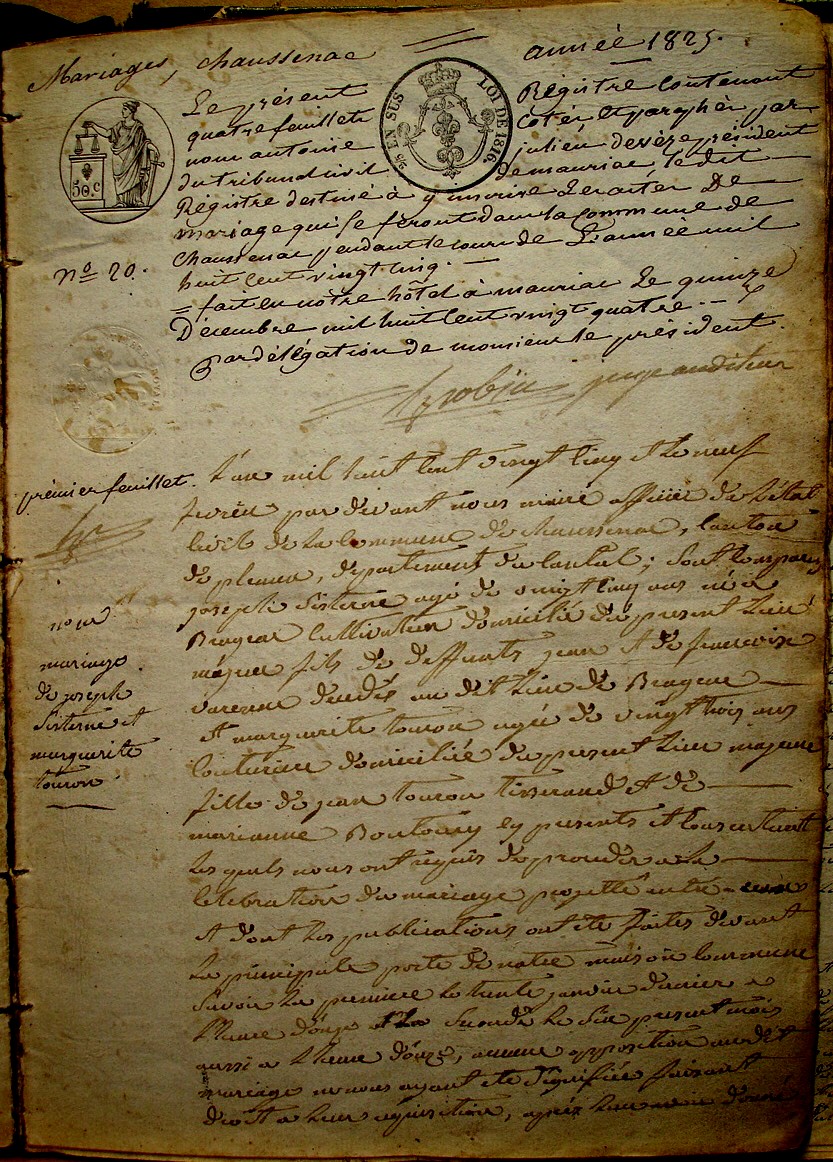 Mariages, chaussenac année 1825.
Le présent Registre Contenant
quatre feuillets Côtés et paraphés par
nous antoine julien devèze président
du tribunal civil de mauriac le dit
Registre destiné à y inscrire Les actes De
mariage qui se feront dans la Commune de
Chaussenac pendant le cours de L'année mil
huit Cent vingt cinq. —
= fait en nôtre hôtel à mauriac Le quinze
Décembre mil huit Cent vingt quatre. —
Par délégation de monsieur le président.
juge auditeur
EN SUS
LOI DE 1816.
50.c
N.o 20.
prémier feuillet.
n.o 1er
mariage
de joseph
Sisterne et
marguerite
touron
L'an mil huit Cent vingt Cinq et le neuf
fevrier par devant nous maire officier de L'état
Civil de La Commune de Chaussenac, Canton
de pleaux, departement du Cantal; Sont Comparus
joseph Sisterne agé de vingt Cinq ans né a
Brageac Cultivateur domicilié du present Lieu
majeur fils de deffunts jean et de francoise
varenne décédés au dit Lieu de Brageac —
et marguerite touron agée de vingt trois ans
Couturiere domiciliée du present Lieu majeure
fille de jean touron tisserand et de —
marianne icy presents et Consentant
Les quels nous ont requis de proceder a La —
Celebration du mariage projetté entre eux
et dont Les publications ont été faites devant
La principale porte de notre maison Commune
Savoir La premiere Le trente janvier dernier a
L'heure d'onze et La Seconde Le Six present mois
aussi a L'heure d'onze, aucune opposition au dit
mariage ne nous ayant été Signifiée faisant
droit a Leur requisition, après Leur avoir donné